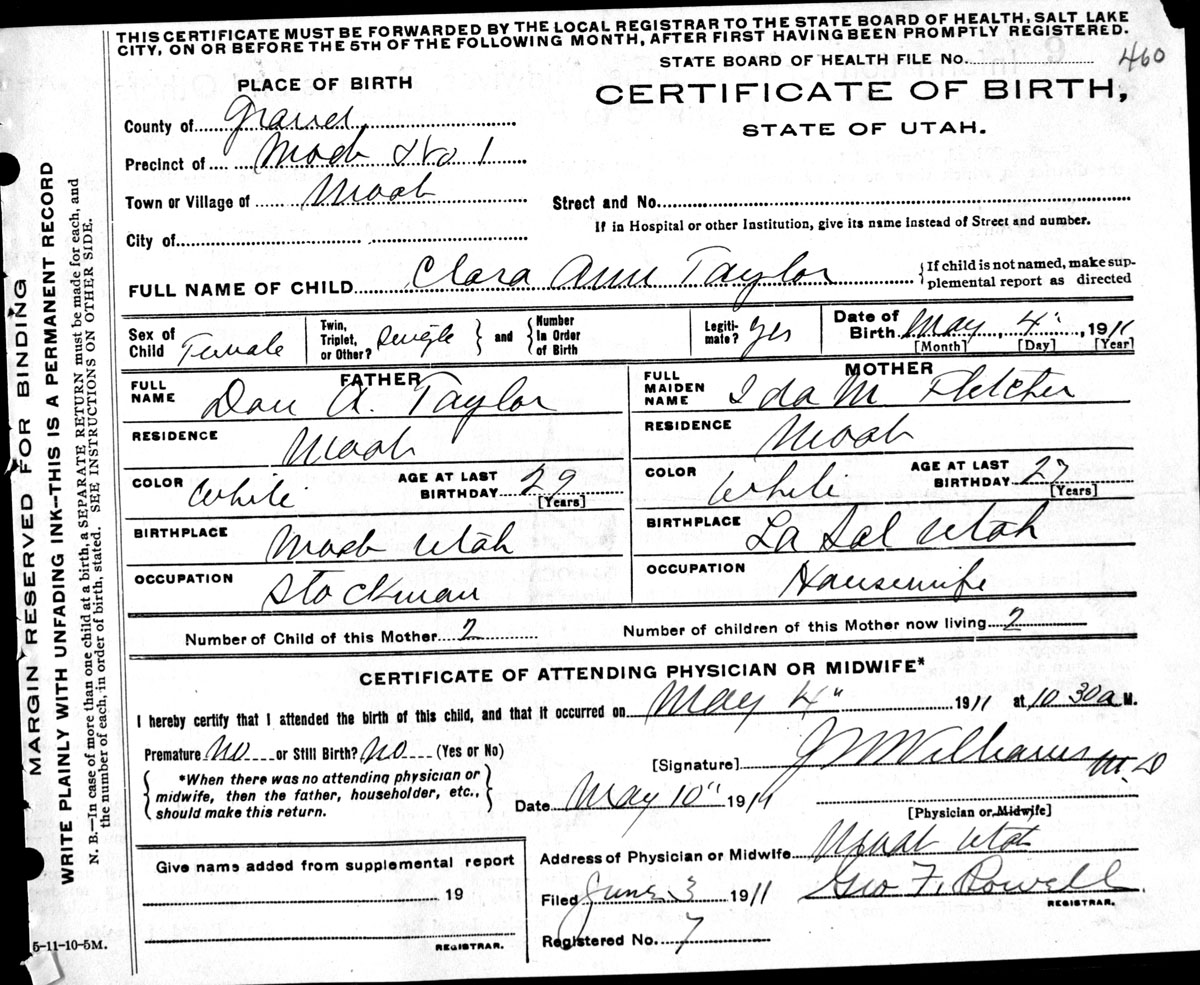 THIS CERTIFICATE MUST BE FORWARDED BY THE LOCAL REGISTRAR TO THE STATE BOARD OF HEALTH, SALT LAKE
CITY, ON OR BEFORE THE 5TH OF THE FOLLOWING MONTH, AFTER FIRST HAVING BEEN PROMPTLY REGISTERED.
STATE BOARD OF HEALTH FILE No. 460
PLACE OF BIRTH
CERTIFICATE OF BIRTH,
STATE OF UTAH.
County of Grand
Precinct of Moab No 1
Town or Village of Moab
Street and No.
If in Hospital or other Institution, give its name instead of Street and number.
City of
FULL NAME OF CHILD Clara Ann Taylor {If child is not named, make sup-
plemental report as directed
Sex of Child Female Twin, Triplet, or Other? Single } and { Number In Order of Birth Legiti- mate? Yes Date of Birth May 4", 1911
[Month] [Day] [Year]
FATHER MOTHER
FULL NAME Dan A. Taylor FULL MAIDEN NAME Ida M Fletcher
RESIDENCE Moab RESIDENCE Moab
COLOR White AGE AT LAST BIRTHDAY 29 [Years] COLOR White AGE AT LAST BIRTHDAY 27 [Years]
BIRTHPLACE Moab Utah BIRTHPLACE La Sal Utah
OCCUPATION Stockman OCCUPATION Housewife
Number of Child of this Mother 2 Number of children of this Mother now living 2
CERTIFICATE OF ATTENDING PHYSICIAN OR MIDWIFE*
I hereby certify that I attended the birth of this child, and that it occurred on May 4" 1911 at 10 30 a M.
Premature No or Still Birth? No (Yes or No)
[Signature] J W Williams M.D
*When there was no attending physician or
midwife, then the father, householder, etc.,
should make this return.
Date May 10" 1911
[Physician or Midwife]
Give name added from supplemental report
19
REGISTRAR.
Address of Physician or Midwife Moab Utah
Filed June 3 1911 Geo F. Powell
REGISTRAR.
Registered No. 7
5-11-10-5M.
MARGIN RESERVED FOR BINDING
WRITE PLAINLY WITH UNFADING INK--THIS IS A PERMANENT RECORD
N. B.—In case of more than one child at a birth, a SEPARATE RETURN must be made for each, and
the number of each, in order of birth, stated. SEE INSTRUCTIONS ON OTHER SIDE.